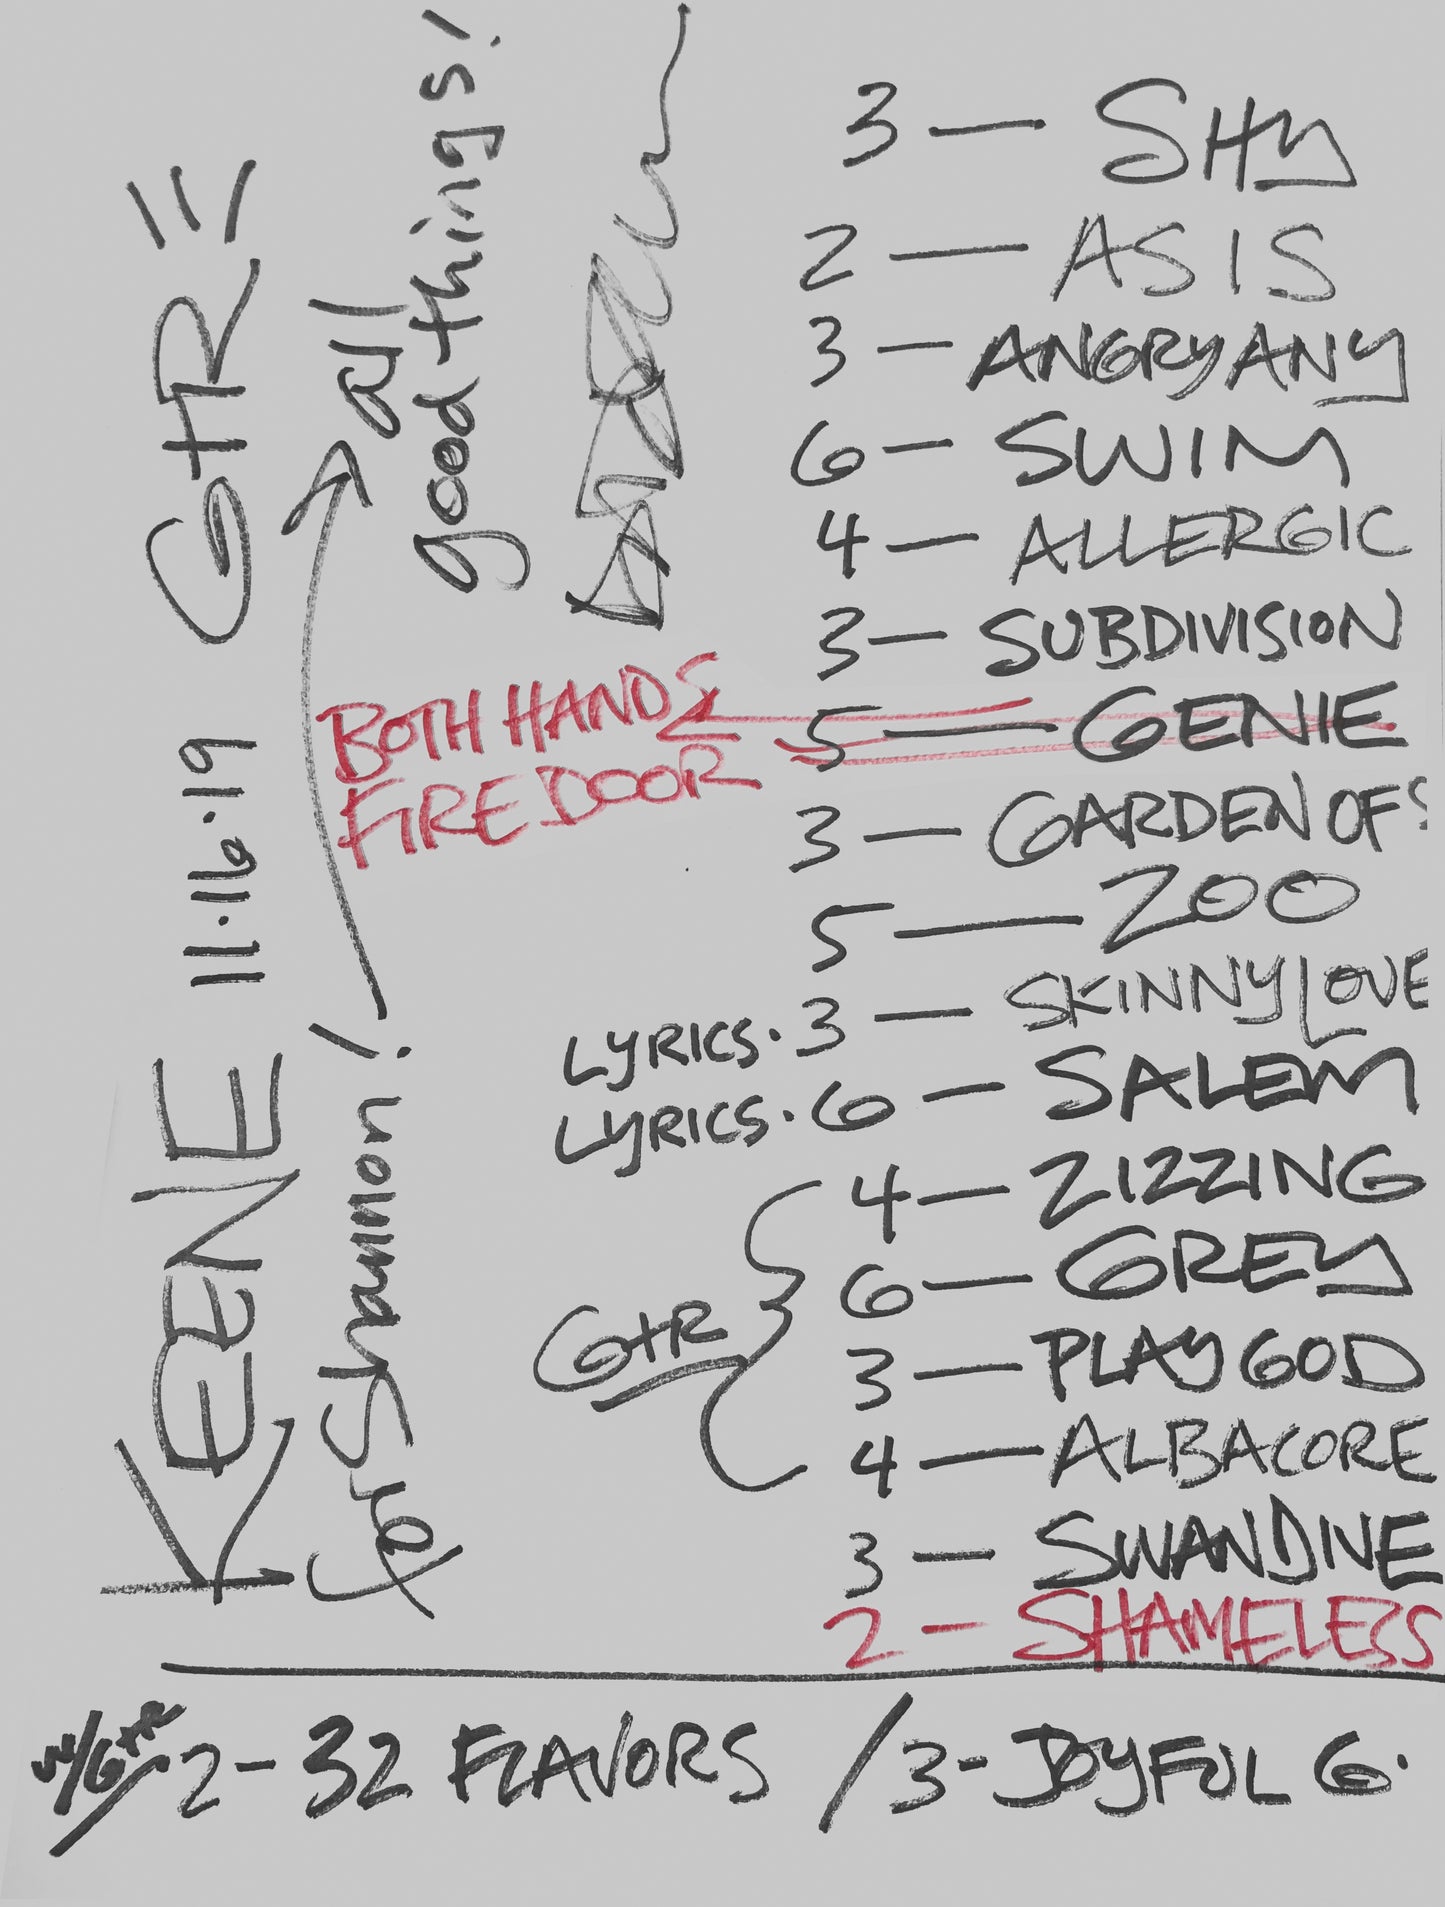 KEENE 11.16.19 GTR
for Shannon! all
good things!
3 — SHY
2 — AS IS
3 — ANGRYANY
6 — SWIM
4 — ALLERGIC
3 — SUBDIVISION
BOTH HANDS
FIRE DOOR
5 — GENIE
3 — GARDEN OF
5 — ZOO
LYRICS · 3 — SKINNY LOVE
LYRICS · 6 — SALEM
4 — ZIZZING
GTR
6 — GREY
3 — PLAY GOD
4 — ALBACORE
3 — SWANDIVE
2 — SHAMELESS
w/GTR 2 - 32 FLAVORS / 3 - JOYFUL G.